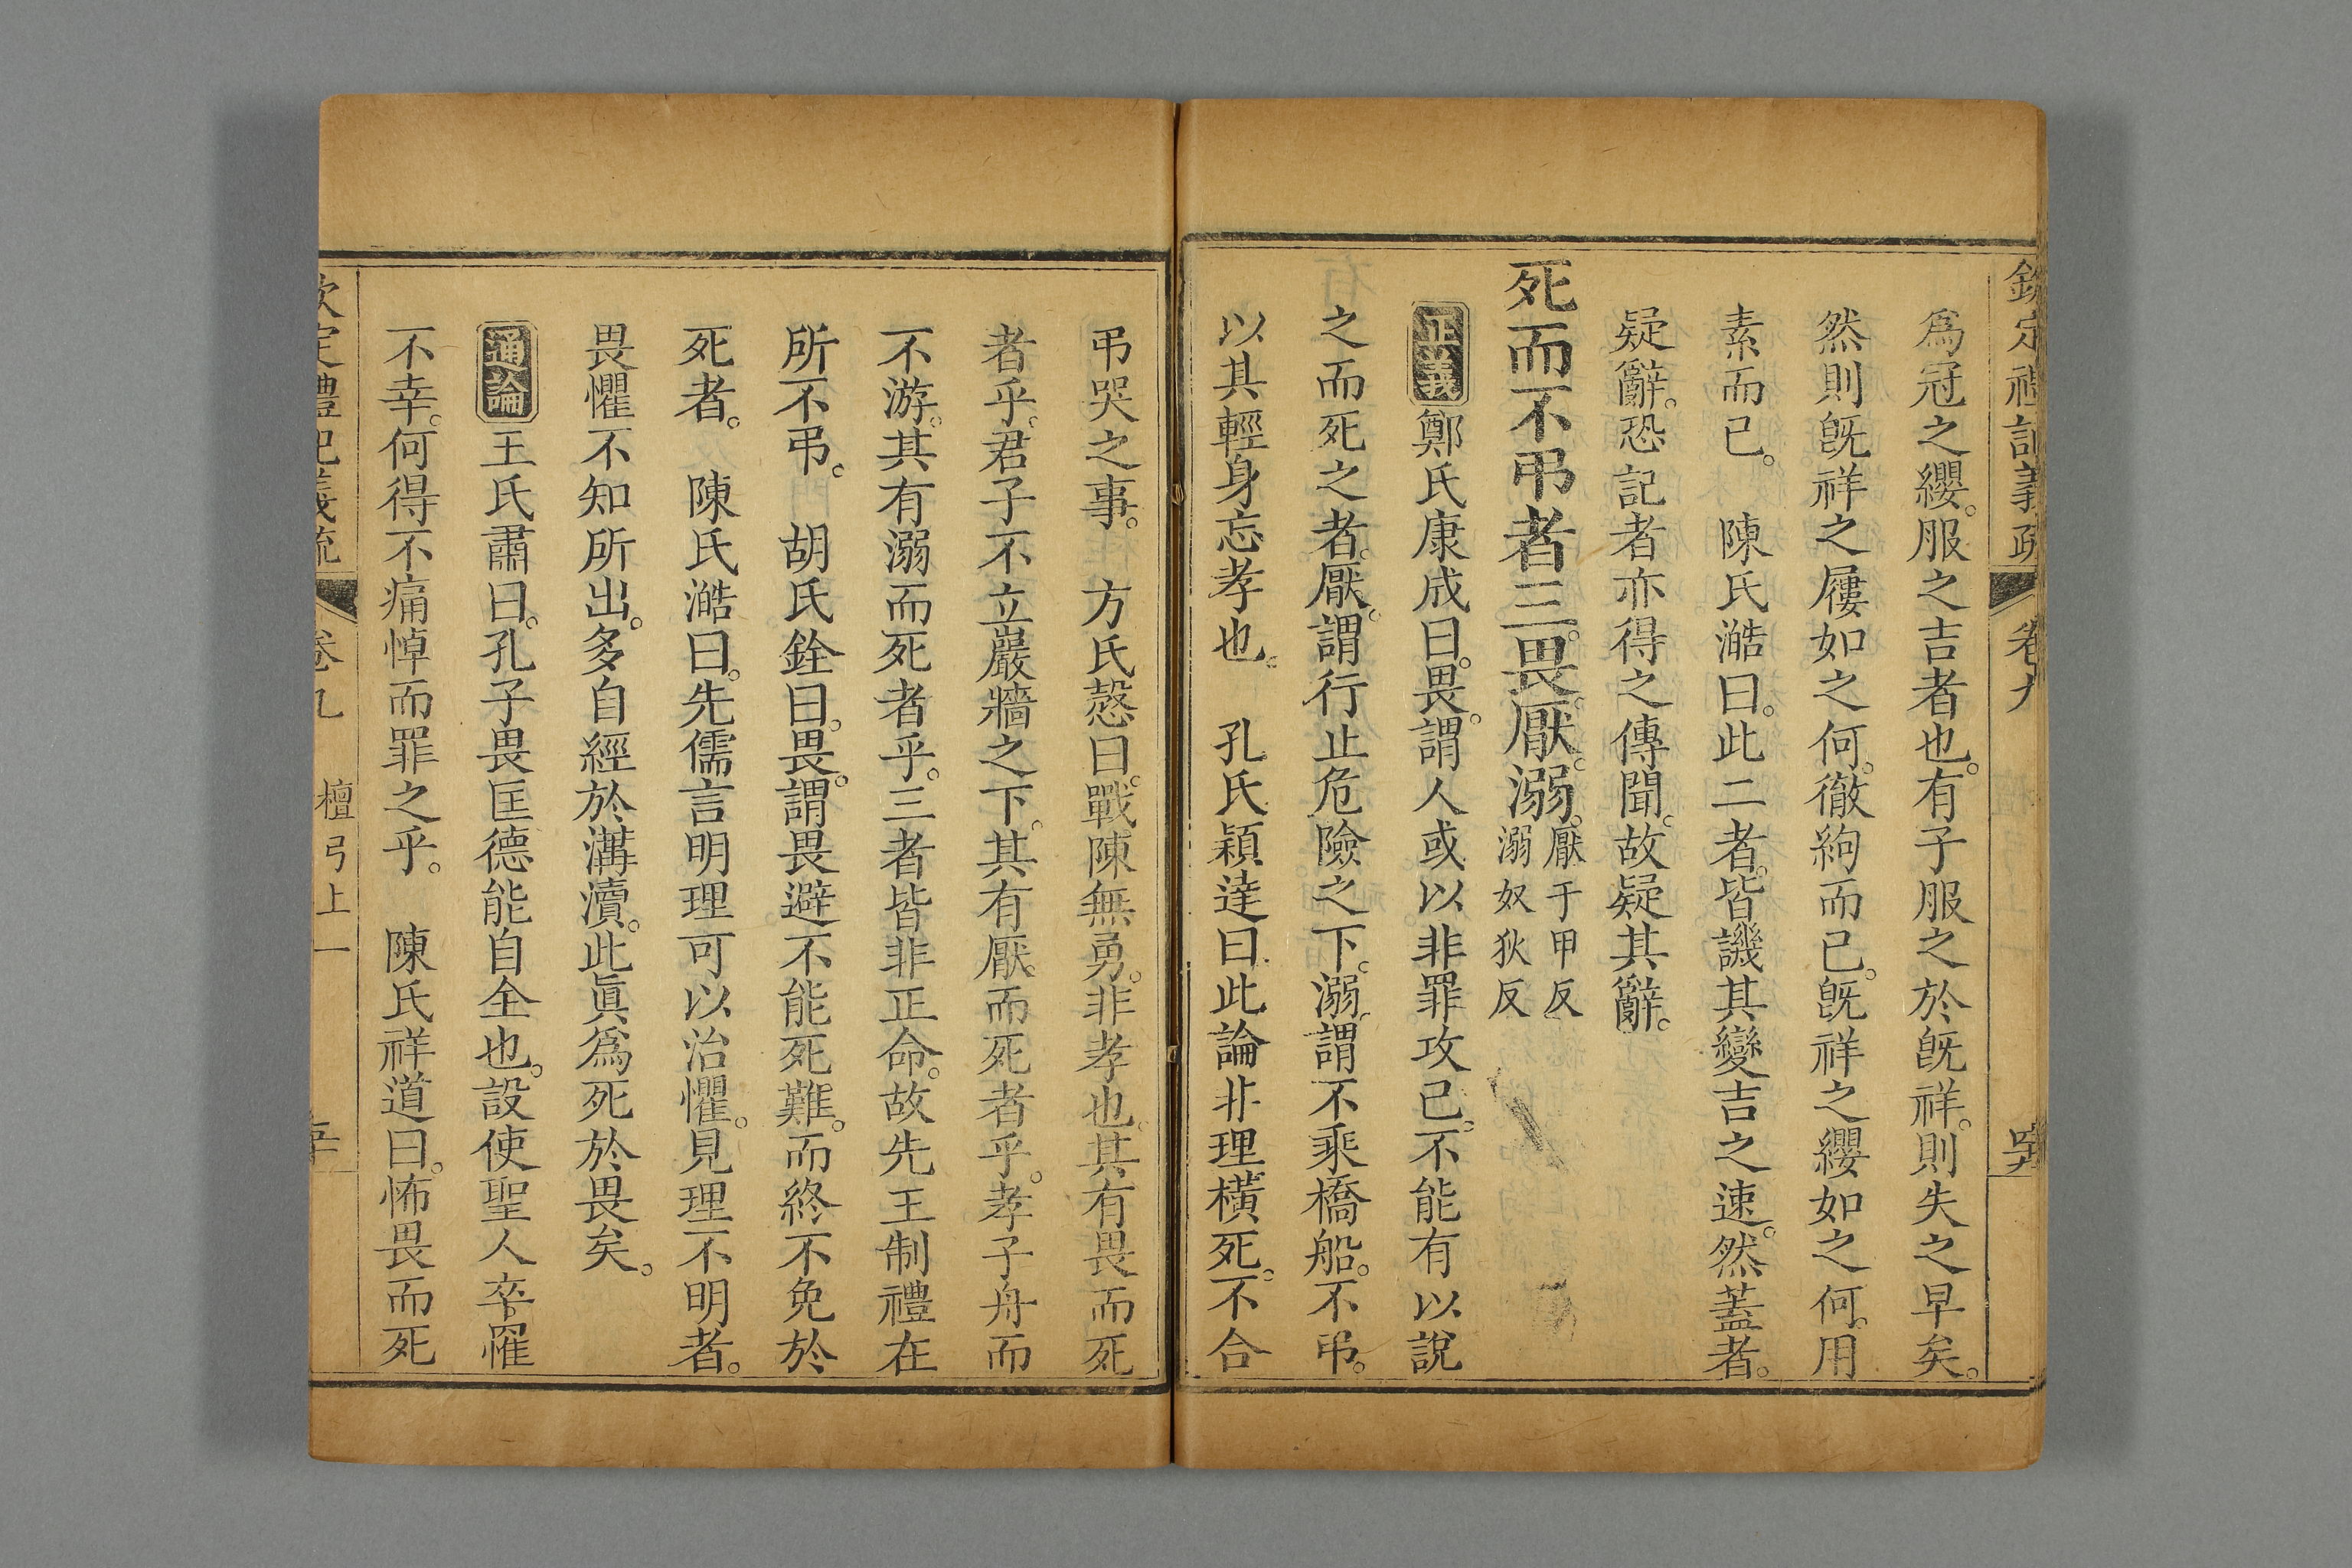 欽定禮記義疏 卷九
爲冠之纓。服之吉者也。有子服之於旣祥。則失之早矣。
然則旣祥之屨如之何。徹絇而已。旣祥之纓如之何。用
素而已。 陳氏澔曰。此二者。皆譏其變吉之速。然蓋者。
疑辭。恐記者亦得之傳聞。故疑其辭。
死而不弔者三。畏。厭。溺。厭于甲反 溺奴狄反
正義 鄭氏康成曰。畏。謂人或以非罪攻己。不能有以說
之而死之者。厭。謂行止危險之下。溺。謂不乘橋船。不弔。
以其輕身忘孝也。 孔氏穎達曰。此論非理橫死。不合
弔哭之事。 方氏慤曰。戰陳無勇。非孝也。其有畏而死
者乎。君子不立巖牆之下。其有厭而死者乎。孝子舟而
不游。其有溺而死者乎。三者皆非正命。故先王制禮在
所不弔。 胡氏銓曰。畏。謂畏避不能死難。而終不免於
死者。 陳氏澔曰。先儒言明理可以治懼。見理不明者。
畏懼不知所出。多自經於溝瀆。此眞爲死於畏矣。
通論 王氏肅曰。孔子畏匡。德能自全也。設使聖人卒罹
不幸。何得不痛悼而罪之乎。 陳氏祥道曰。怖畏而死
欽定禮記義疏 卷九 檀弓上一 五十